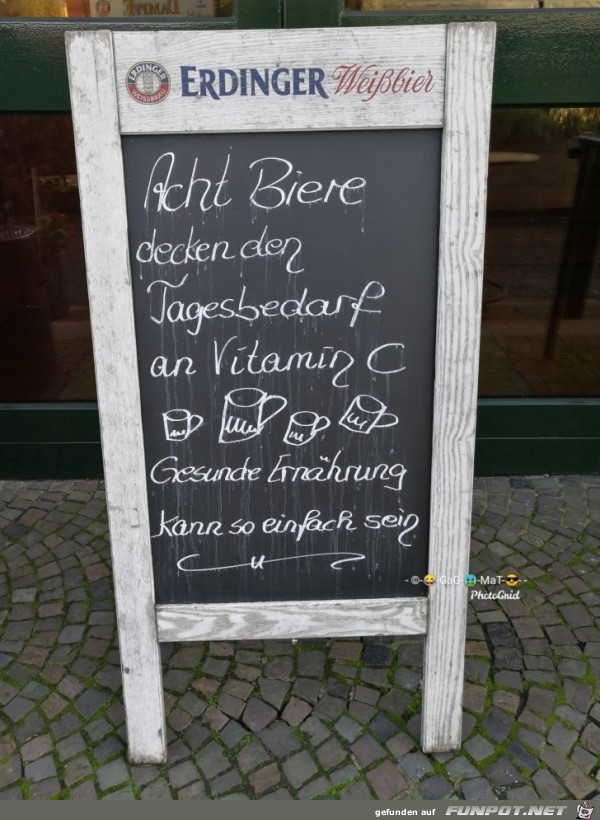 ERDINGER WEISSBRÄU
ERDINGER Weißbier
Acht Biere
decken den
Tagesbedarf
an Vitamin C
Gesunde Ernährung
kann so einfach sein
-©-😄-GaG-🤢-MaT-😎--
PhotoGrid
gefunden auf FUNPOT.NET